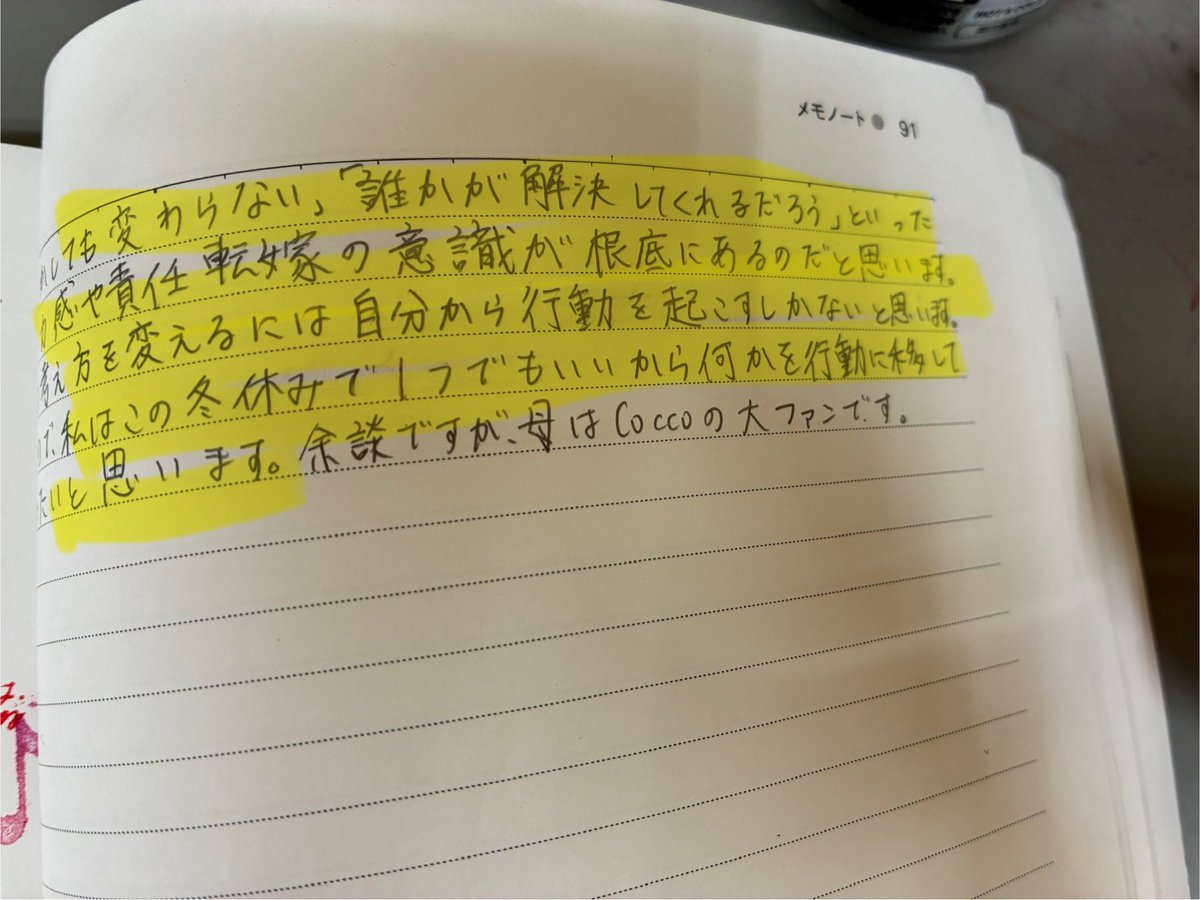 メモノート● 91
しても変わらない」「誰かが解決してくれるだろう」といった
感や責任転嫁の意識が根底にあるのだと思います。
考え方を変えるには自分から行動を起こすしかないと思います。
で、私はこの冬休みで1つでもいいから何かを行動に移して
たいと思います。余談ですが、母はCoccoの大ファンです。